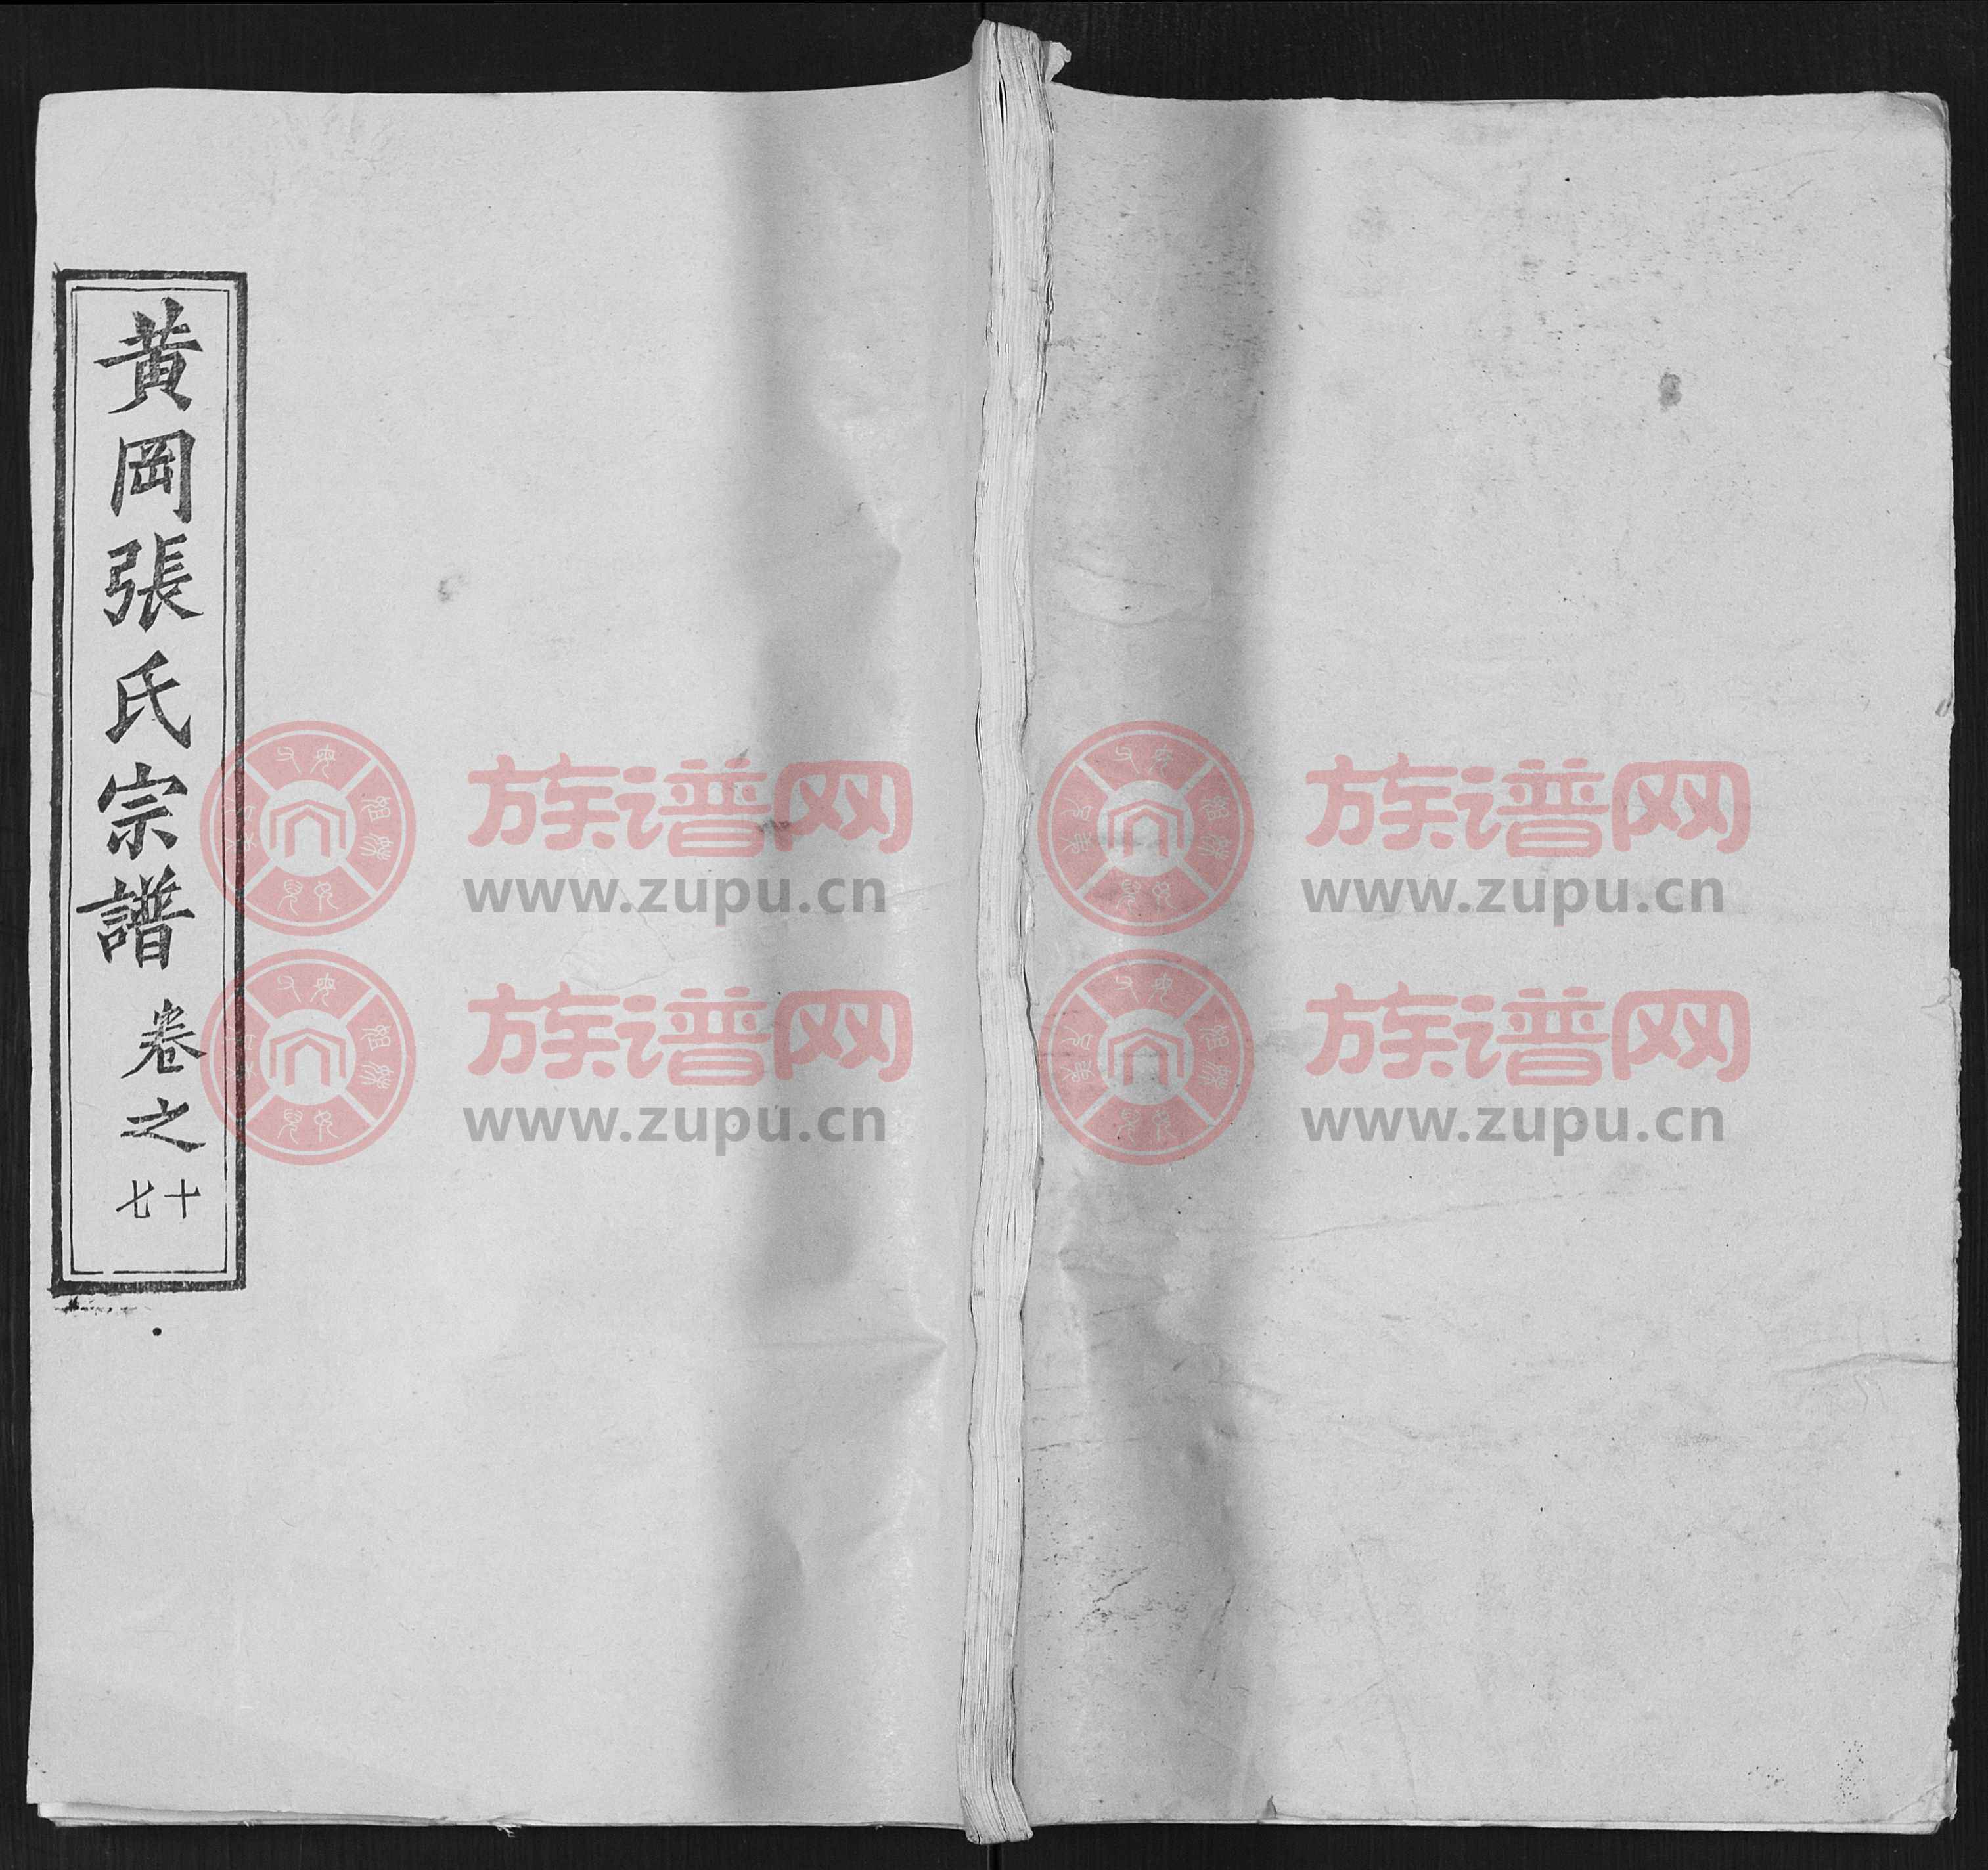 黄岡張氏宗譜 卷之十七
族谱网
www.zupu.cn
族谱网
www.zupu.cn
族谱网
www.zupu.cn
族谱网
www.zupu.cn